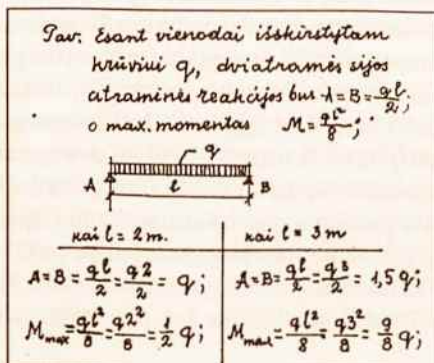 Pav. Esant vienodai išskirstytam
krūviui q, dviatramės sijos
atraminės reakcijos bus A=B=ql/2;
o max. momentas M=ql²/8;
q
A l B
kai l = 2 m. kai l = 3 m
A=B=ql/2=q2/2=q; A=B=ql/2=q3/2=1,5q;
Mmax=ql²/8=q2²/8=1/2 q; Mmax=ql²/8=q3²/8=9/8 q;